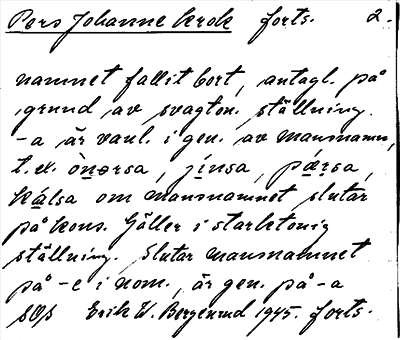 Pers Johanne krok forts. 2.
namnet fallit bort, antagl. på
grund av svagton. ställning.
-a är vanl. i gen. av mansnamn,
t.ex. ònorsa, jinsa, pǽrsa,
kálsa om mansnamnet slutar
på kons. Gäller i starktonig
ställning. Slutar mansnamnet
på -e i nom., är gen. på -a
Erik W. Bergenrud 1945. forts.